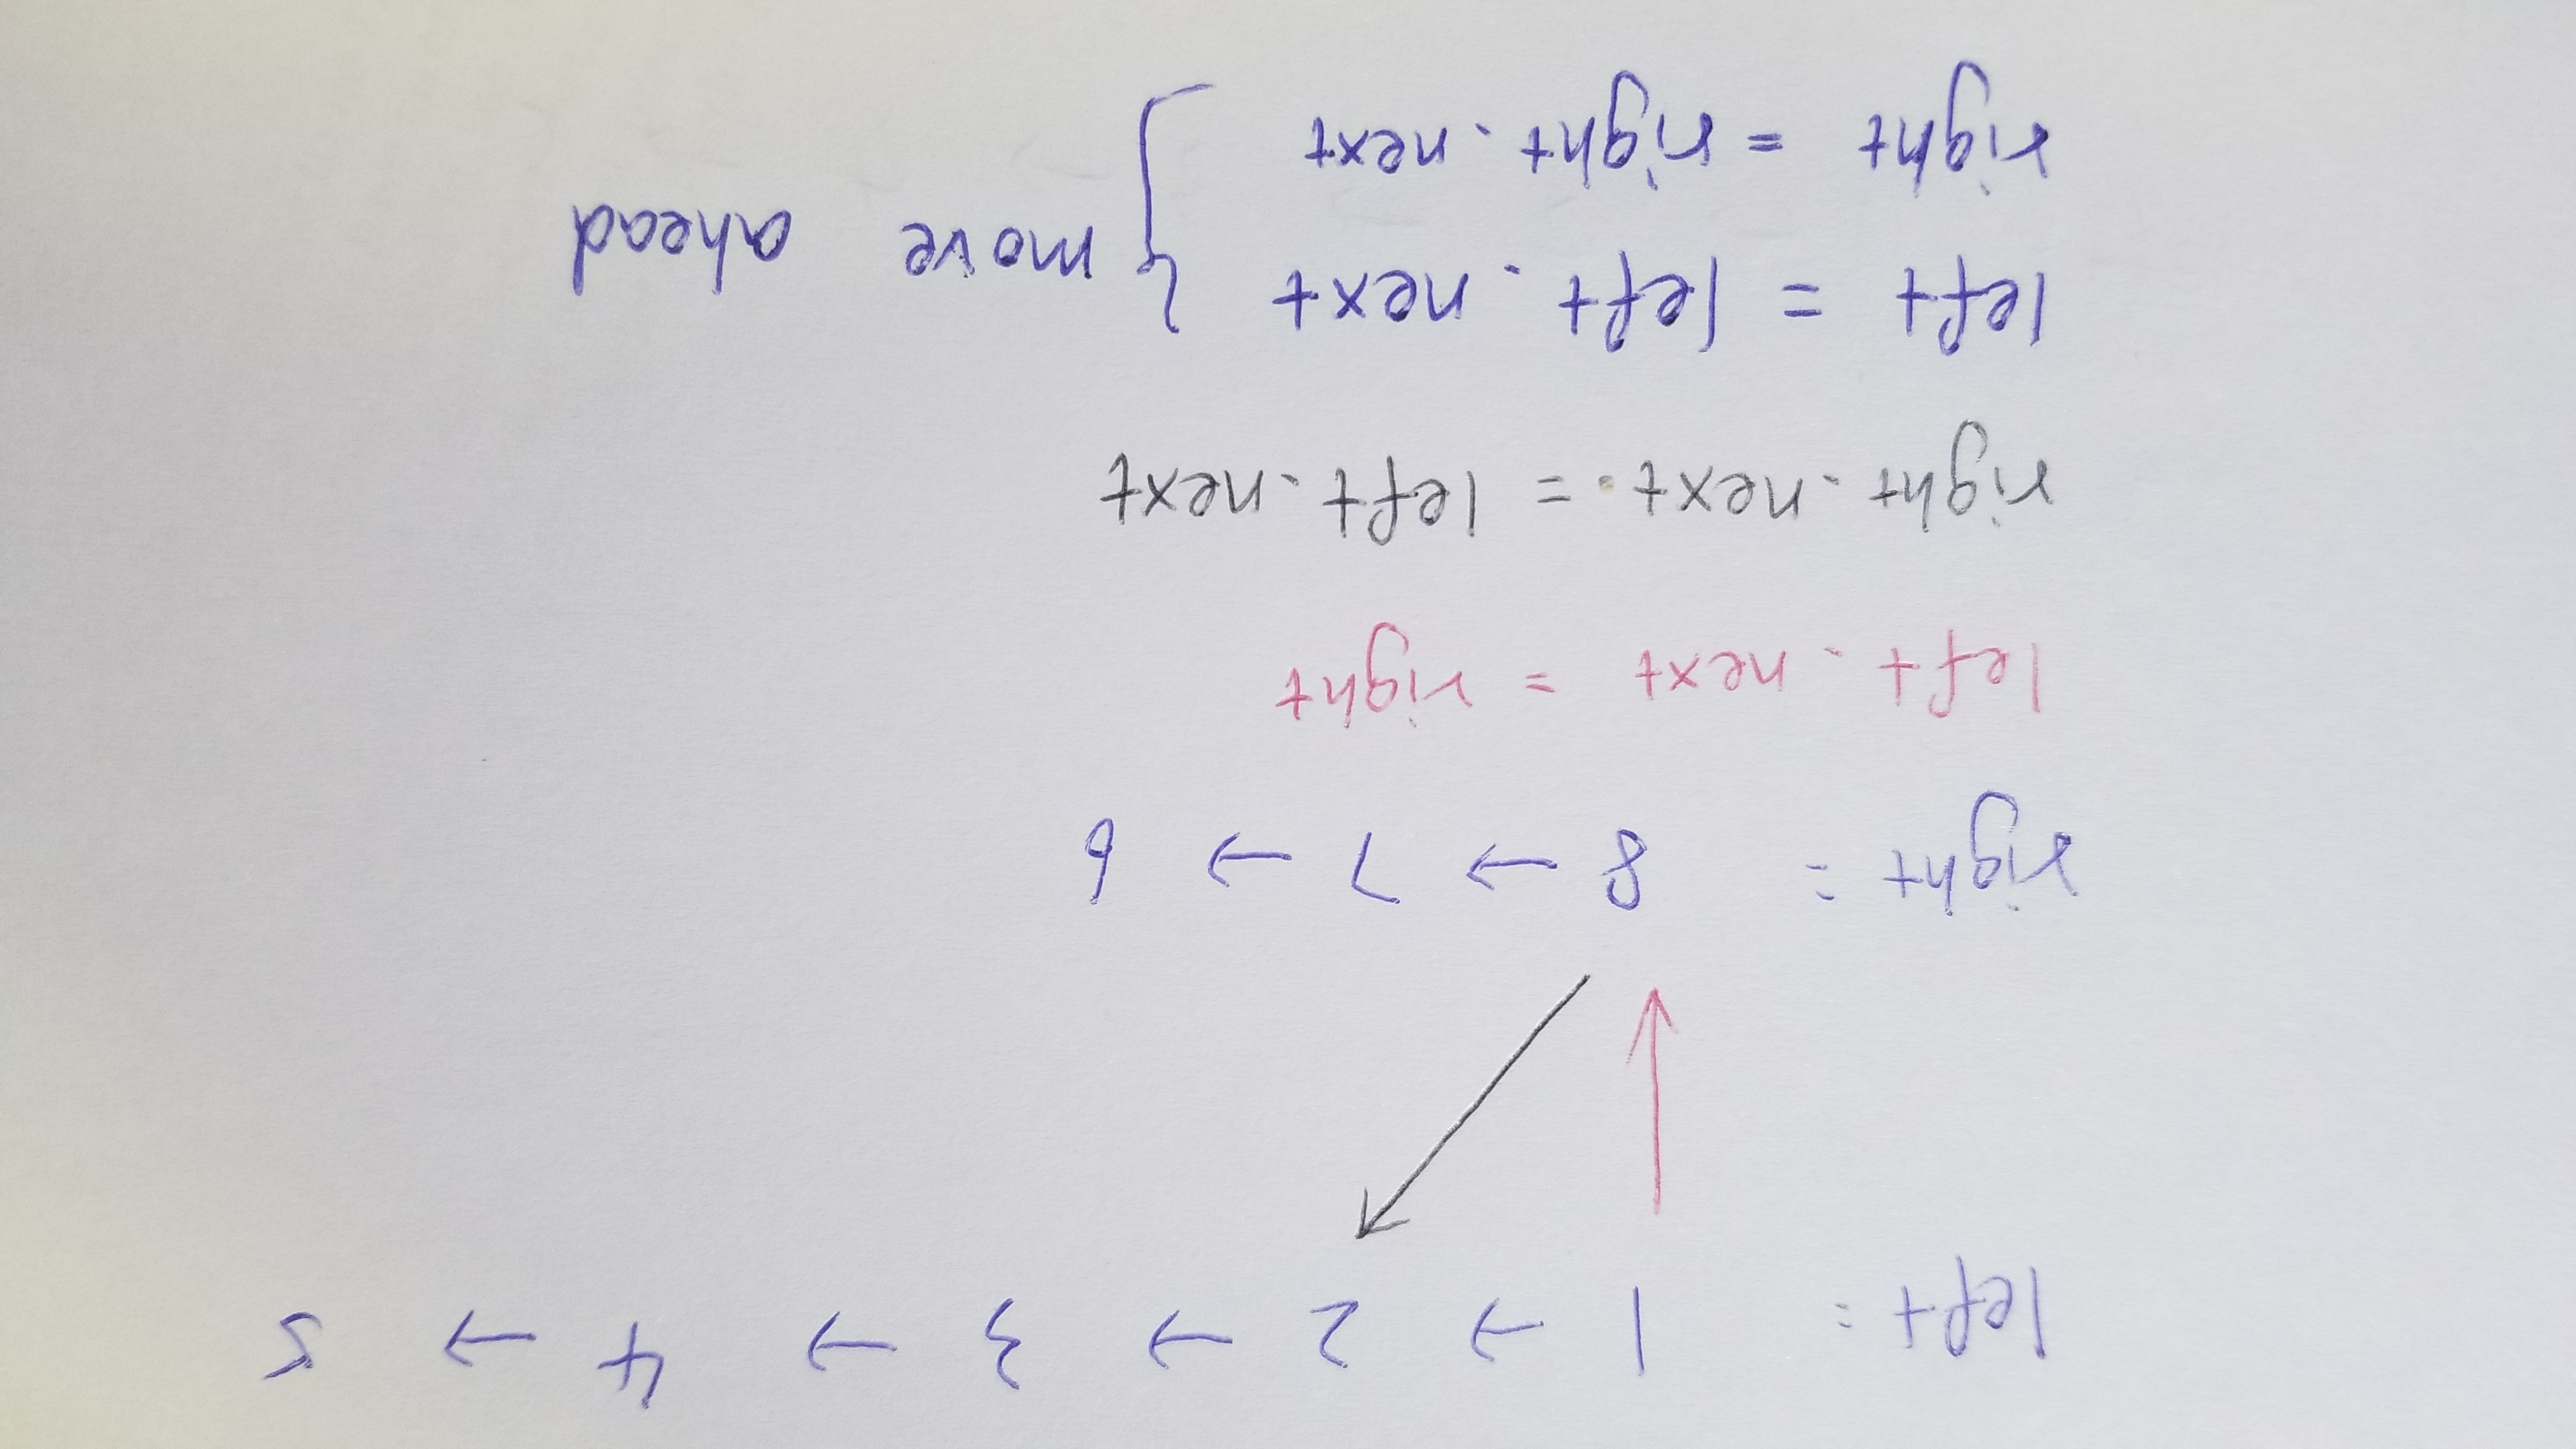 left: 1 → 2 → 3 → 4 → 5
right = 8 → 7 → 6
left.next = right
right.next = left.next
left = left.next
right = right.next
} move ahead